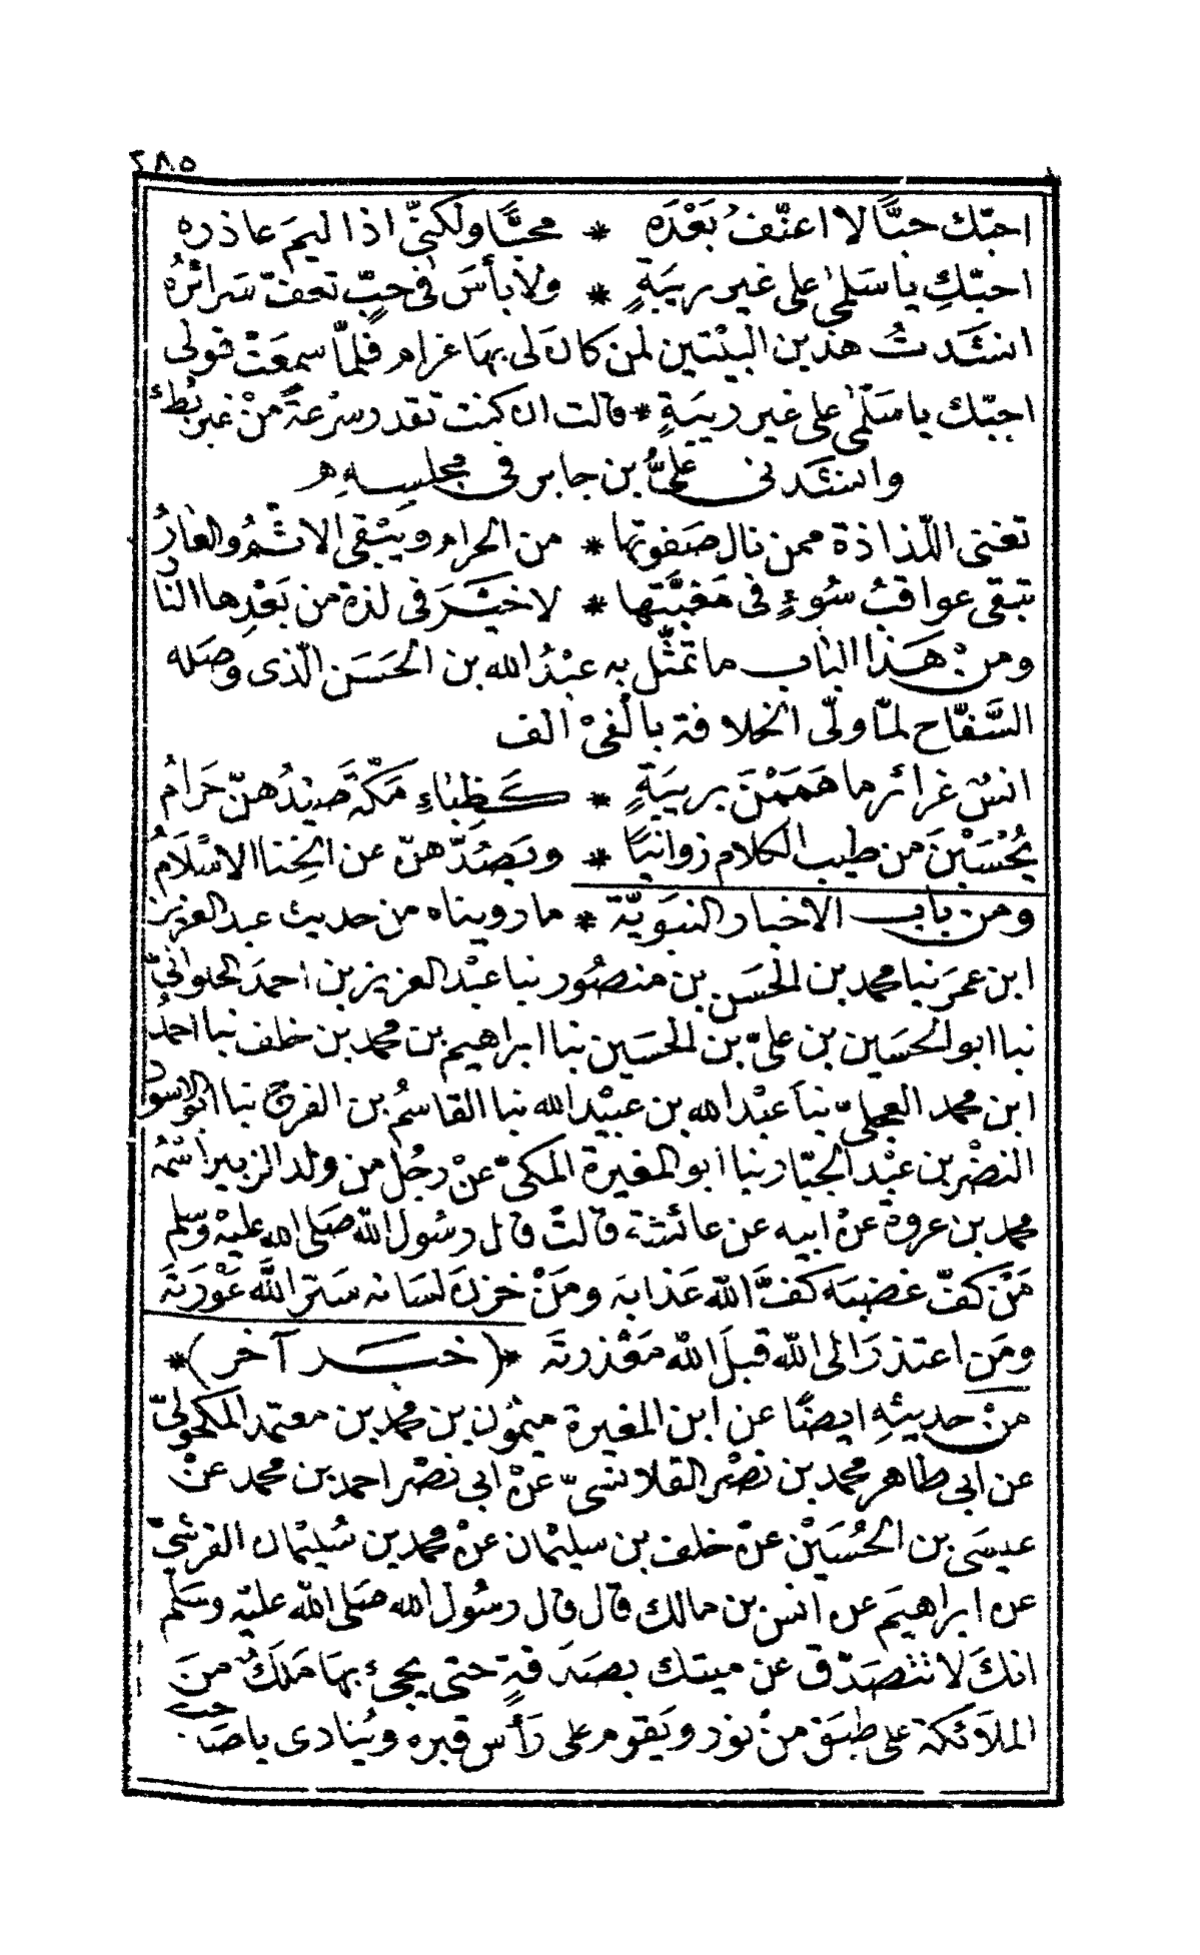 ٢٨٥
احبّك حبًّا لا اعنّفُ بَعْدَه * محبًّا ولكنّى اذا ليمَ عاذره
احبّكِ يا سَلمىٰ على غير ريبَةٍ * ولا بأسَ فى حبٍّ تعفّ سَرائرُه
انشَدتُ هذين البيْتين لمن كان لى بهَا غرام فلمّا سمعَتْ قولى
احبّك يا سَلمْىٰ على غير ريبَةٍ * قالت ان كنت تقدر سرْعةً منْ غير بُطء
وانشَدنى علىُّ بن جابر فى مجلسِهِ
تفنى اللّذاذة ممن نال صَفوتها * من الحرام ويَبْقى الاثمُ والعارُ
تبقى عواقبُ سُوءٍ فى مَغبَّتها * لا خيْرَ فى لذة من بَعْدِها النارُ
ومنْ هَذا الباب ما تمثّل به عبْدُ الله بن الحَسَن الّذى وصَله
السَّفّاح لمّا ولّى الخلافة بالْفىْ الف
انسٌ غرائر ما هَمَمْنَ بريبَةٍ * كَظِبَاءِ مَكّة صَيْدُهنّ حَرامُ
يُحْسَبْنَ من طيب الكلام زوانيًا * ويَصُدّهنّ عن الخِنا الاسْلامُ
ومن باب الاخبار النبَويّة * ما رويناه من حديث عبد العزيز
ابن عمَر نبا محمد بن الحَسَن بن منصُور نبا عبْد العزيز بن احمدَ الحلوانىّ
نبا ابو الحسَين بن علىّ بن الحسَين نبا ابراهيم بن محمد بن خلف نبا احمدُ
ابن محمد العجلىّ نبأ عبْد الله بن عبيْد الله نبا القاسمُ بن الفرج نبا ابو الاسود
النضْر بن عبْد الجبّار نبا ابو المغيرة المكىّ عنْ رجُل من ولد الزبير اسْمُه
محمد بن عروة عنْ ابيه عن عائشة قالتْ قال رسُول الله صَلى الله عليْه وسلم
مَنْ كفّ غضبَه كفَّ الله عَذابَه ومَنْ خزنَ لسَانه سَتر اللَّه عَوْرَتَه
ومَن اعتذرَ الى الله قبلَ الله مَعْذرته *( خبَر آخر )*
منْ حديثِهِ ايضًا عن ابن المغيرة ميْمُون بن محمد بن معتمد المكحولىّ
عن ابى طاهر محمد بن نصْر القلانسىّ عنْ ابى نصْر احمد بن محمد عنْ
عيسَى بن الحُسَيْن عنْ خلف بن سليْمان عنْ محمد بن سُليْمان القرشىّ
عن ابراهيمَ عن انس بن مالك قال قال رسُول الله صَلى الله عليْه وسَلّم
انكَ لا تتصَدّق عن ميتك بصَدقةٍ حتى يجىء بهَا مَلَكٌ منَ
الملائكة على طبَق منْ نور ويَقوم على رَأس قبره ويُنادى يا صَاحب